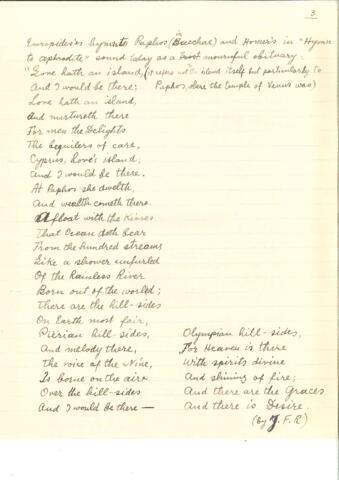 3
Euripides's hymn to Paphos (in Bacchae) and Homer's in "Hymn
to aphrodite" sound today as a most mournful obituary:
"Love hath an island, (it refers not to island itself but particularly to
And I would be there; Paphos, where the temple of Venus was)
Love hath an island,
And nurtureth there
For men the Delights
The beguilers of care,
Cyprus, Love's island;
And I would be there.
At Paphos she dwelth,
And wealth cometh there.
Afloat with the Kisses
That Ocean doth bear
From the hundred streams
Like a shower unfurled
Of the Rainless River
Born out of the world;
There are the hill-sides
On Earth most fair,
Pierian hill-sides,
And melody there,
The voice of the Nine,
Is borne on the air
Over the hill-sides
And I would be there —
Olympian hill-sides,
For Heaven is there
With spirits divine
And shining of fire;
And there are the Graces
And there is Desire.
(by J. F. R)